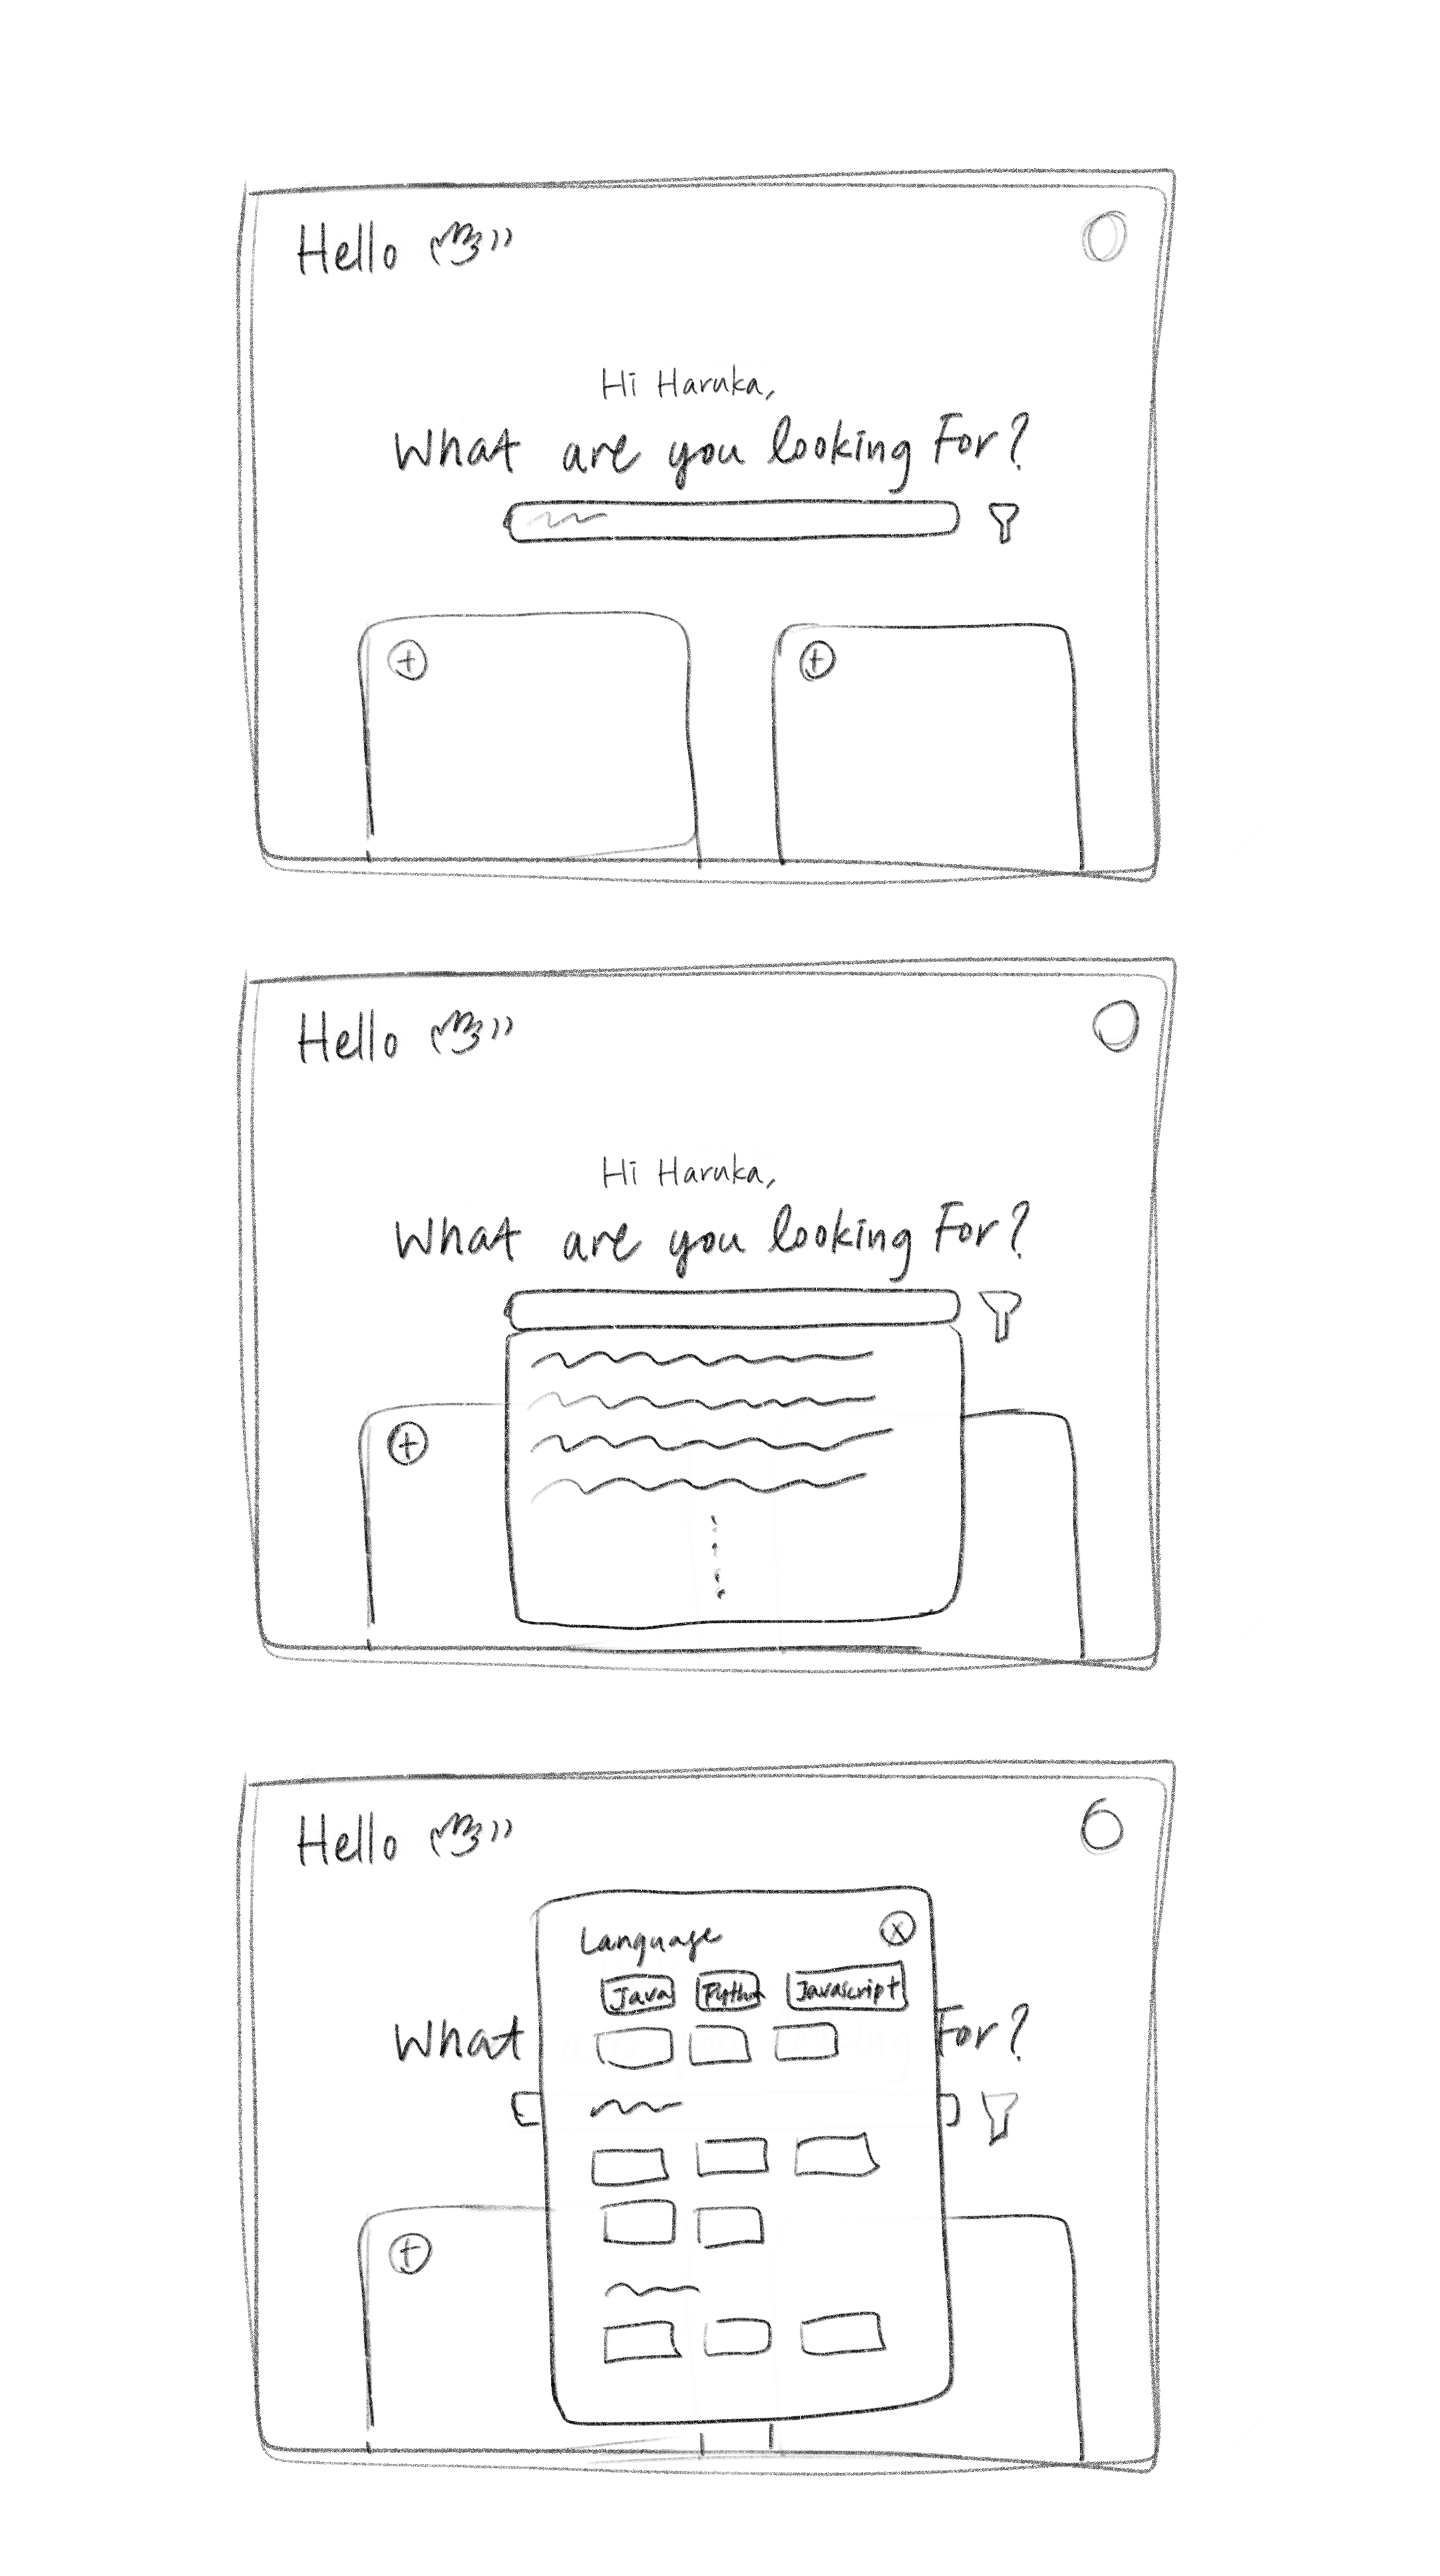 Hello
Hi Haruka,
What are you looking For?
Hello
Hi Haruka,
What are you looking For?
Hello
Language
Java Python Javascript
What For?